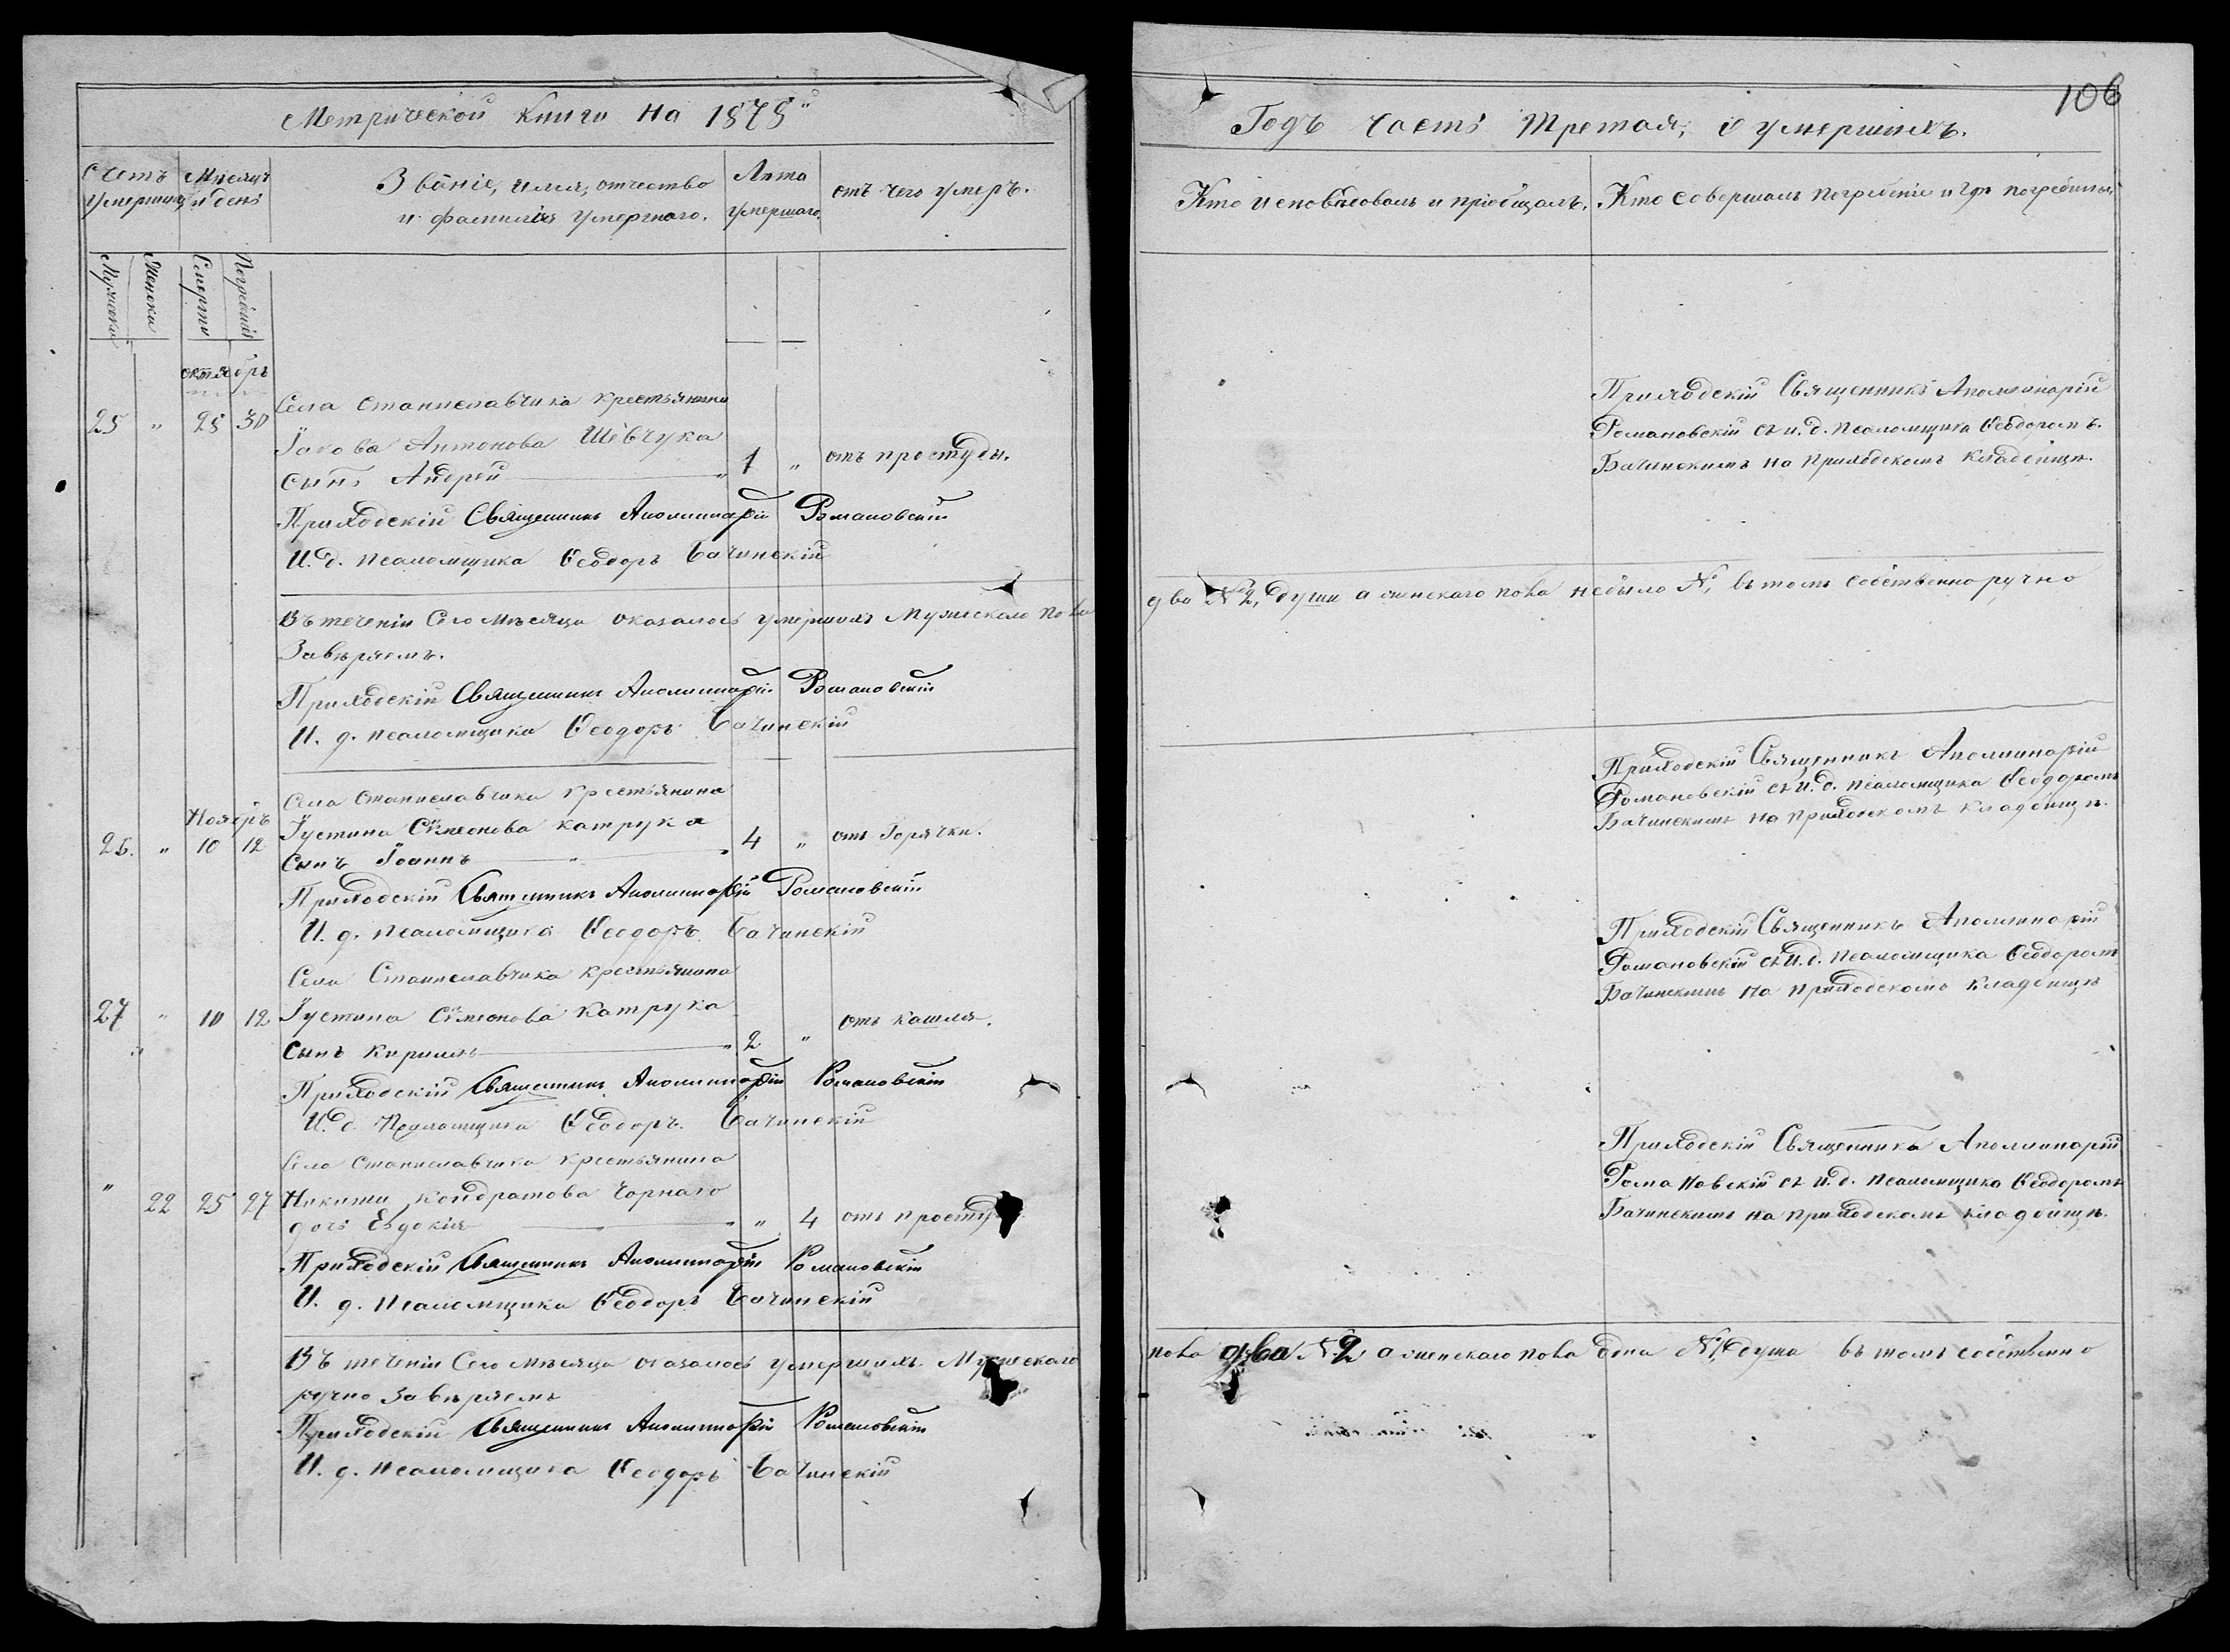 Метрической Книги на 1878й
Счетъ умершихъ
Мѣсяцъ и день
Званіе, имя, отчество и фамилія умершаго.
Лѣта умершаго
отъ чего умеръ.
Мужеска
Женска
Смерти
Погребенія
октябрь
Села Станиславчика крестьянина
25 " 28 30 Іакова Антонова Шевчука
сынъ Андрей 1 " отъ простуды.
Приходскій Священникъ Аполлинарій Романовскій
И. д. псаломщика Ѳеодоръ Бачинскій
Въ теченіи Сего мѣсяца оказалось умершихъ Мужескаго пола
Завѣряемъ.
Приходскій Священникъ Аполлинарій Романовскій
И. д. псаломщика Ѳеодоръ Бачинскій
Села Станиславчика крестьянина
Ноябрь
26. " 10 12 Іустина Симеонова Катрука 4 " отъ Горячки.
Сынъ Іоаннъ
Приходскій Священникъ Аполлинарій Романовскій
И. д. псаломщика Ѳеодоръ Бачинскій
Села Станиславчика крестьянина
27 " 10 12 Іустина Симеонова Катрука отъ кашля.
сынъ Кириллъ 2 "
Приходскій Священникъ Аполлинарій Романовскій
И. д. Псаломщика Ѳеодоръ Бачинскій
Села Станиславчика крестьянина
" 22 25 27 Никиты Кондратова Чорнаго
дочь Евдокія " 4 отъ просту
Приходскій Священникъ Аполлинарій Романовскій
И. д. Псаломщика Ѳеодоръ Бачинскій
Въ теченіи Сего мѣсяца оказалось умершихъ Мужескаго
ручно Завѣряемъ
Приходскій Священникъ Аполлинарій Романовскій
И. д. Псаломщика Ѳеодоръ Бачинскій
106
Годъ часть Третая, о умершихъ.
Кто исповѣдовалъ и пріобщалъ.
Кто совершалъ погребеніе и гдѣ погребены
Приходскій Священникъ Аполлинарій
Романовскій съ и. д. псаломщика Ѳеодоромъ
Бачинскимъ на приходскомъ кладбищѣ.
два №2, души а женскаго пола небыло №, въ томъ собственноручно
Приходскій Священникъ Аполлинарій
Романовскій съ И. д. псаломщика Ѳеодоромъ
Бачинскимъ на приходскомъ кладбищѣ.
Приходскій Священникъ Аполлинарій
Романовскій съ И. д. псаломщика Ѳеодоромъ
Бачинскимъ на приходскомъ кладбищѣ
Приходскій Священникъ Аполлинарій
Романовскій съ и. д. псаломщика Ѳеодоромъ
Бачинскимъ на приходскомъ кладбищѣ.
пола два №2 а женскаго пола одна №1, душа въ томъ собственно